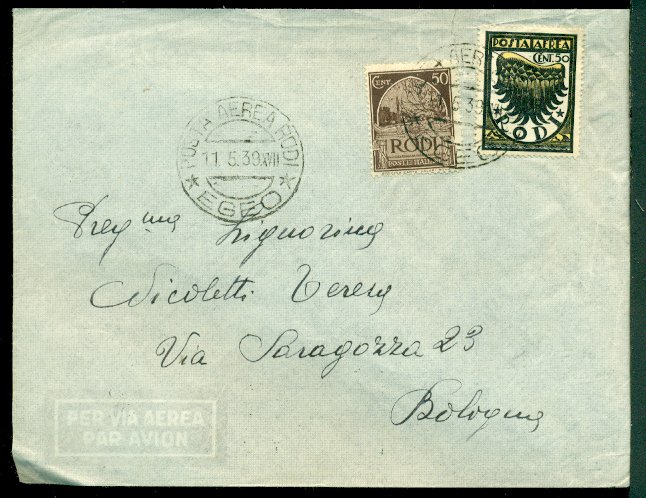 POSTA AEREA RODI
11.5.39.XVII
EGEO
CENT 50
RODI
POSTE ITALIANE
POSTA AEREA
CENT. 50
RODI
Preg.ma Signorina
Nicoletti Teresa
Via Saragozza 23
Bologna
PER VIA AEREA
PAR AVION